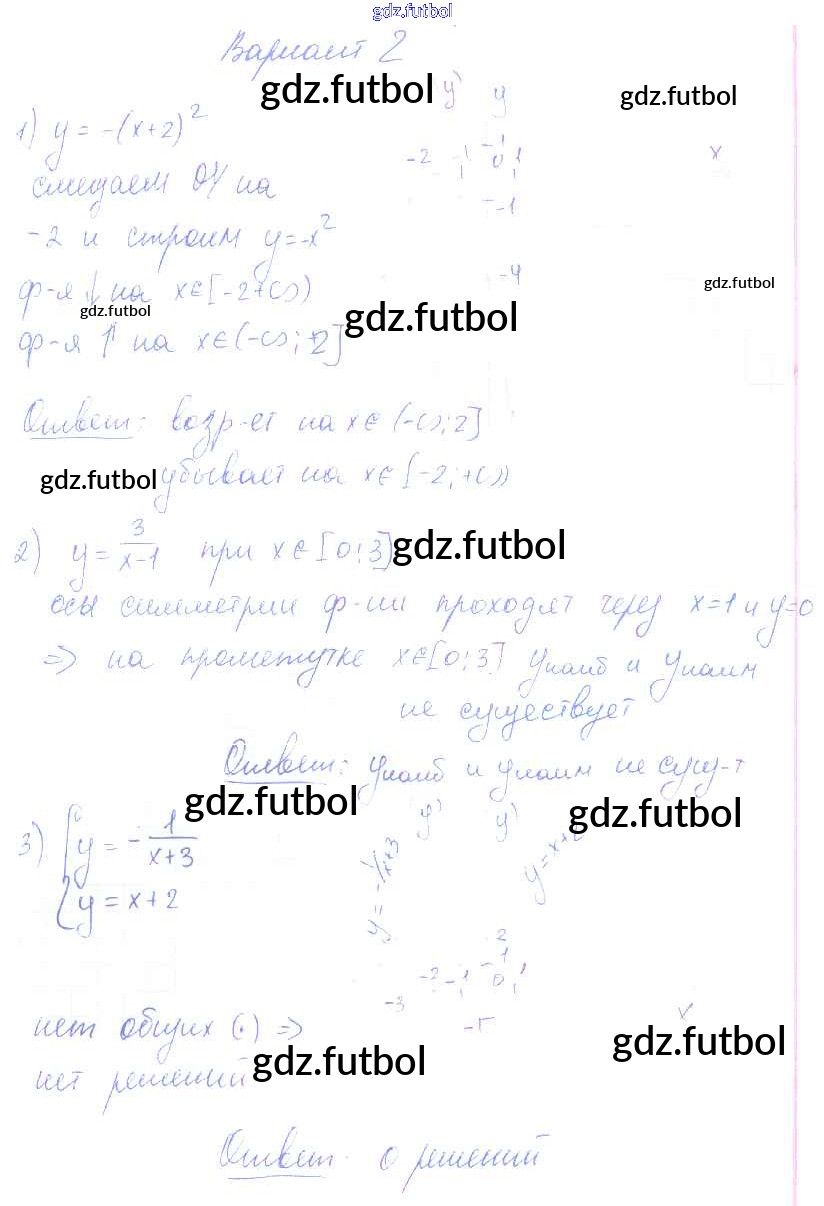 gdz.futbol
Вариант 2
gdz.futbol y y gdz.futbol
1) y = -(x+2)²
-2 -1 0 1 x
смещаем OY на
-1
-2 и строим y=-x²
-4
ф-я ↓ на x∈[-2+∞) gdz.futbol
gdz.futbol gdz.futbol
ф-я ↑ на x∈(-∞;-2]
Ответ: возр-ет на x∈(-∞;2]
gdz.futbol убывает на x∈[-2;+∞)
2) y = 3/(x-1) при x∈[0;3] gdz.futbol
осы симметрии ф-ии проходят через x=1 и y=0
=> на прометутке x∈[0;3] yнаиб и yнаим
не существует
Ответ: yнаиб и yнаим не сущ-т
gdz.futbol y y gdz.futbol
3) { y = -1/(x+3)
y = -1/x+3 y=x+2
y = x+2
2
-2 -1 0 1
-3
-1 x
нет общих (·) => gdz.futbol
нет решений gdz.futbol
Ответ. 0 решений